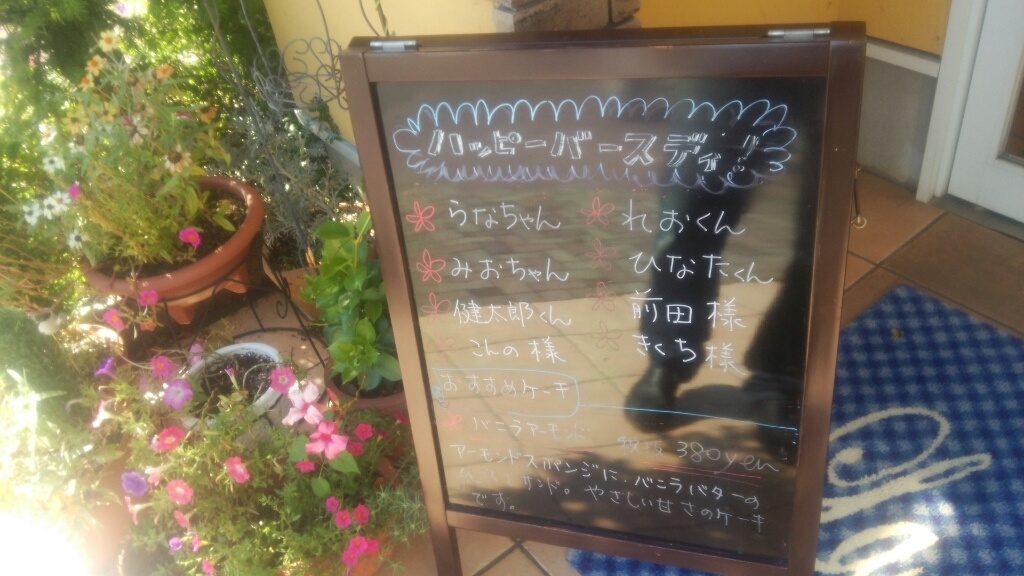 ハッピーバースディ!!
らなちゃん れおくん
みおちゃん ひなたくん
健太郎くん 前田様
こんの様 きくち様
おすすめケーキ
バニラアーモンド
380yen
アーモンドスパンジに、バニラバターの
サンド。やさしい甘さのケーキ
です。